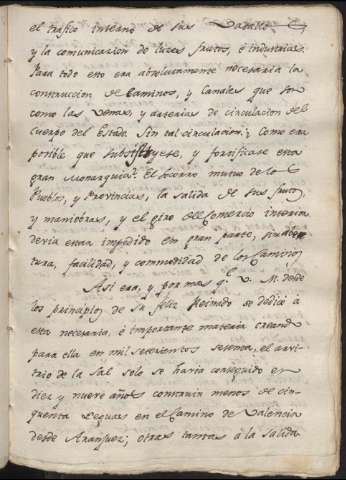 el trafico interno de sus Vasallos
y la comunicacion de luces frutos, e industrias.
Para todo esto era absolutamente necesaria la
construccion de Caminos, y Canales que son
como las venas, y arterias de circulacion del
cuerpo del Estado. Sin tal circulacion, Como era
posible que subsistiese, y fortificase esta
gran Monarquia? El socorro mutuo de los
Pueblos, y Provincias, la salida de sus frutos,
y maniobras, y el giro del Comercio interior
devia estar impedido en gran parte, sin aber
tura, facilidad, y commodidad de los Caminos.
Asi era, y por mas q.e V. M. desde
los principios de su feliz Reinado se dedicó à
esta necesaria, é importante materia creando
para ella en mil setecientos setenta, el arvi-
trio de la Sal solo se havia conseguido en
diez y nueve años construir menos de cin-
quenta Leguas en el Camino de Valencia
desde Aranjuez; otras tantas á la salida